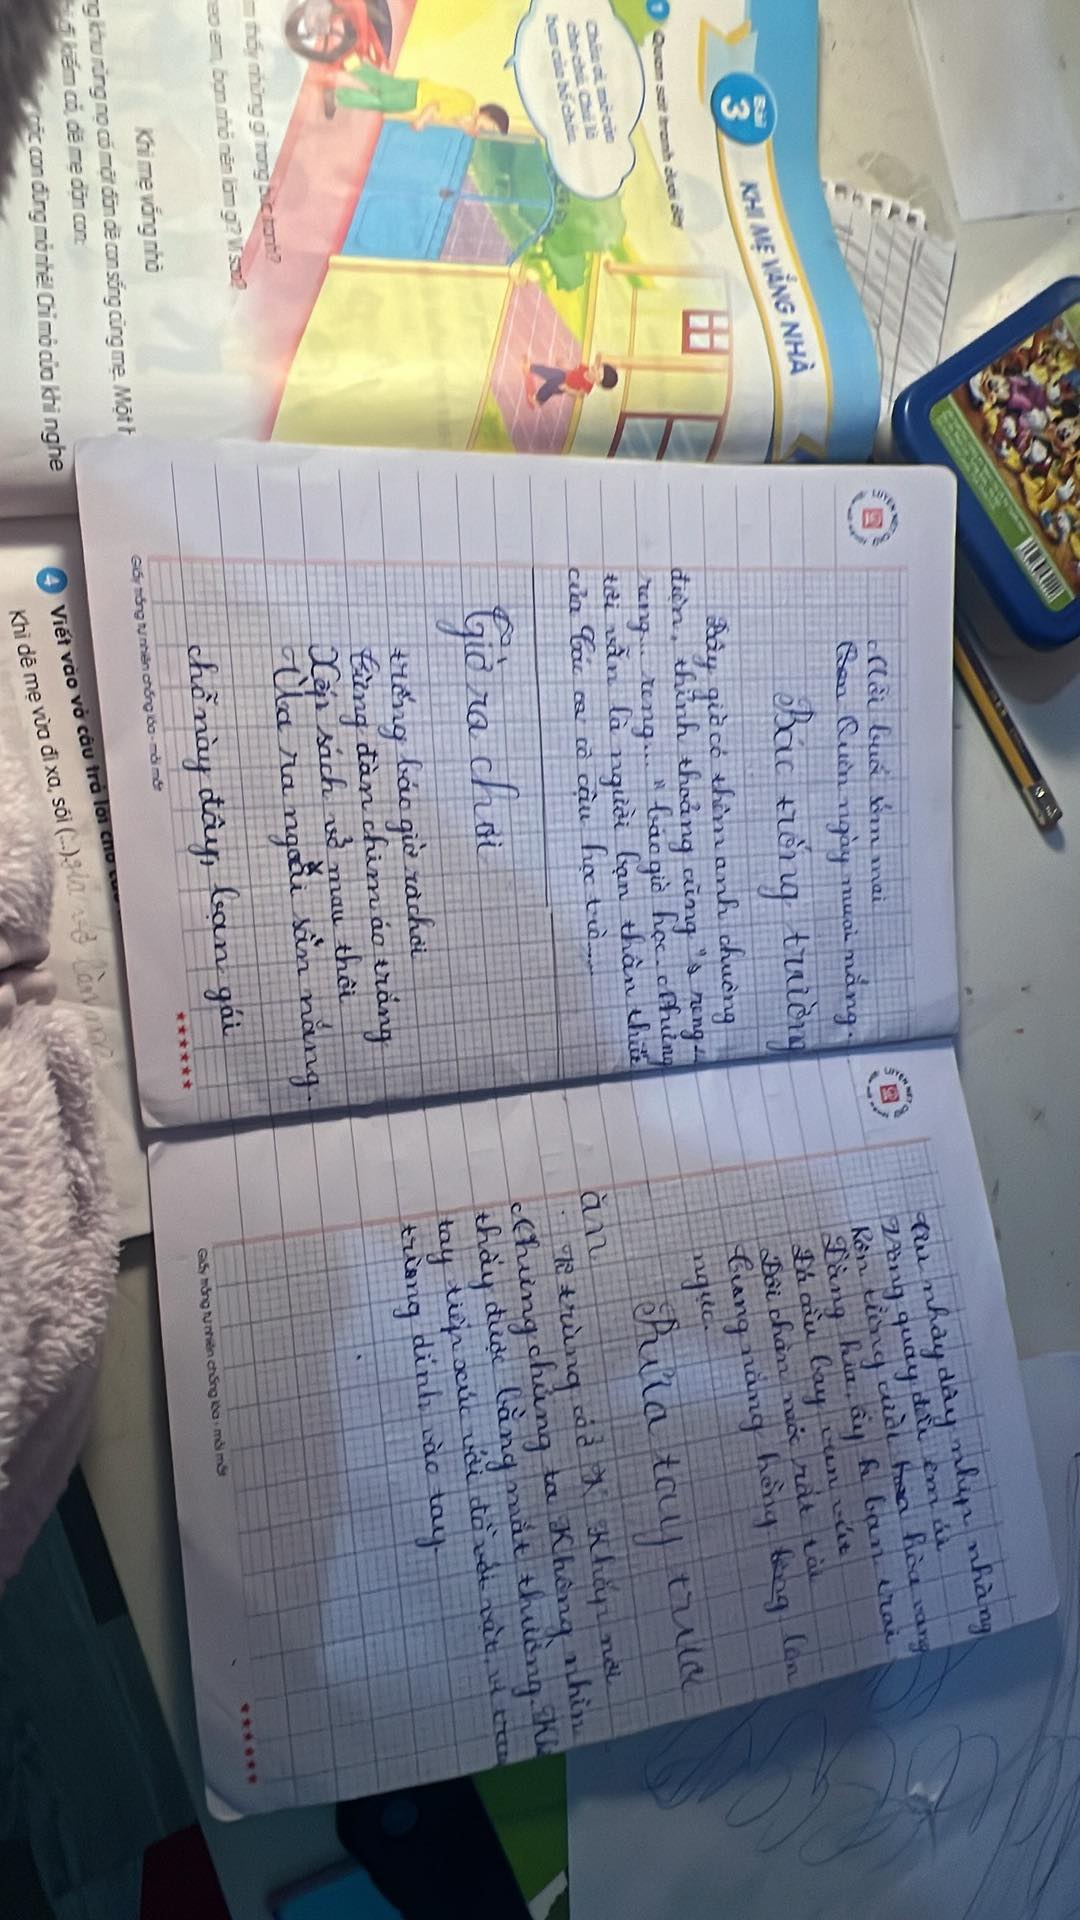 Bài
3
KHI MẸ VẮNG NHÀ
1 Quan sát tranh dưới đây
Cháu ơi, mở cửa
cho chú. Chú là
bạn của bố cháu.
thấy những gì trong bức tranh?
eo em, bạn nhỏ nên làm gì? Vì sao?
Khi mẹ vắng nhà
ng khu rừng nọ có một đàn dê con sống cùng mẹ. Một h
đi kiếm cỏ, dê mẹ dặn con:
các con đừng mở nhé! Chỉ mở cửa khi nghe
LUYỆN NÉT CHỮ
Mỗi buổi sớm mai
Quên ngày mưa nắng.
Bác trống trường
Bây giờ có thêm anh chuông
điện, thỉnh thoảng cũng " reng...
reng... reng..." báo giờ học. Nhưng
tôi vẫn là người bạn thân thiết
của các cô cậu học trò....
Giờ ra chơi
trống báo giờ ra chơi
từng đàn chim áo trắng
Xếp sách vở mau thôi
Ùa ra ngoài sân nắng.
chỗ này đây, bạn gái
★★★★★★
Giấy trắng tự nhiên chống lóa - mỏi mắt
LUYỆN NÉT CHỮ
nhảy dây nhịp nhàng
Vòng quay đều êm ái
Rộn tiếng cười hòa vang
Đằng kia, ấy bạn trai
Đá cầu bay vun vút
Đôi chân móc rất tài
tung nắng hồng lên
ngực.
Rửa tay trước
ăn
Vi trùng có ở Khắp nơi
Nhưng chúng ta Không nhìn
thấy được bằng mắt thường. Kh
tay tiếp xúc với đồ vật, vi
trùng dính vào tay.
★★★★★★
Giấy trắng tự nhiên chống lóa - mỏi mắt
4 Viết vào vở câu trả lời cho câu
Khi dê mẹ vừa đi xa, sói (...).